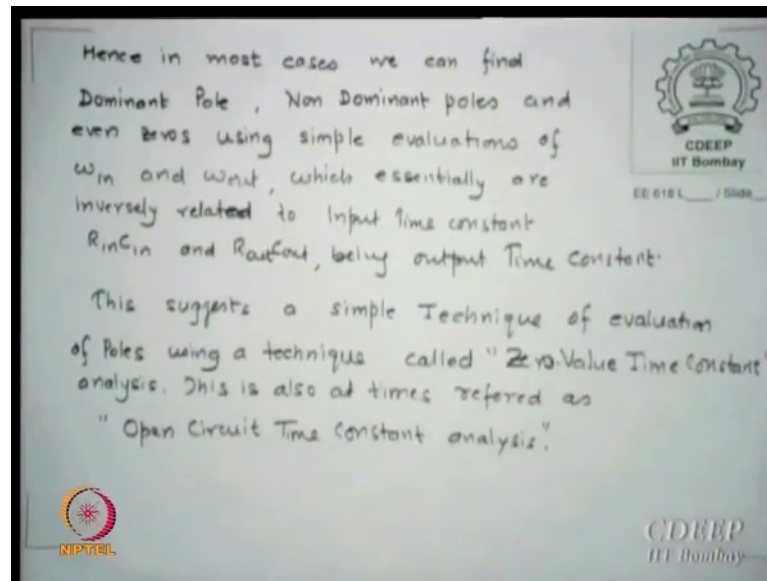 Hence in most cases we can find
Dominant Pole, Non Dominant poles and
even zeros using simple evaluations of
ωin and ωout, which essentially are
inversely related to Input Time constant
RinCin and RoutCout, being output Time Constant.
This suggests a simple Technique of evaluation
of Poles using a technique called "Zero-Value Time Constant"
analysis. This is also at times refered as
"Open Circuit Time Constant analysis".
CDEEP
IIT Bombay
EE 618 L____ / Slide__
NPTEL
CDEEP
IIT Bombay